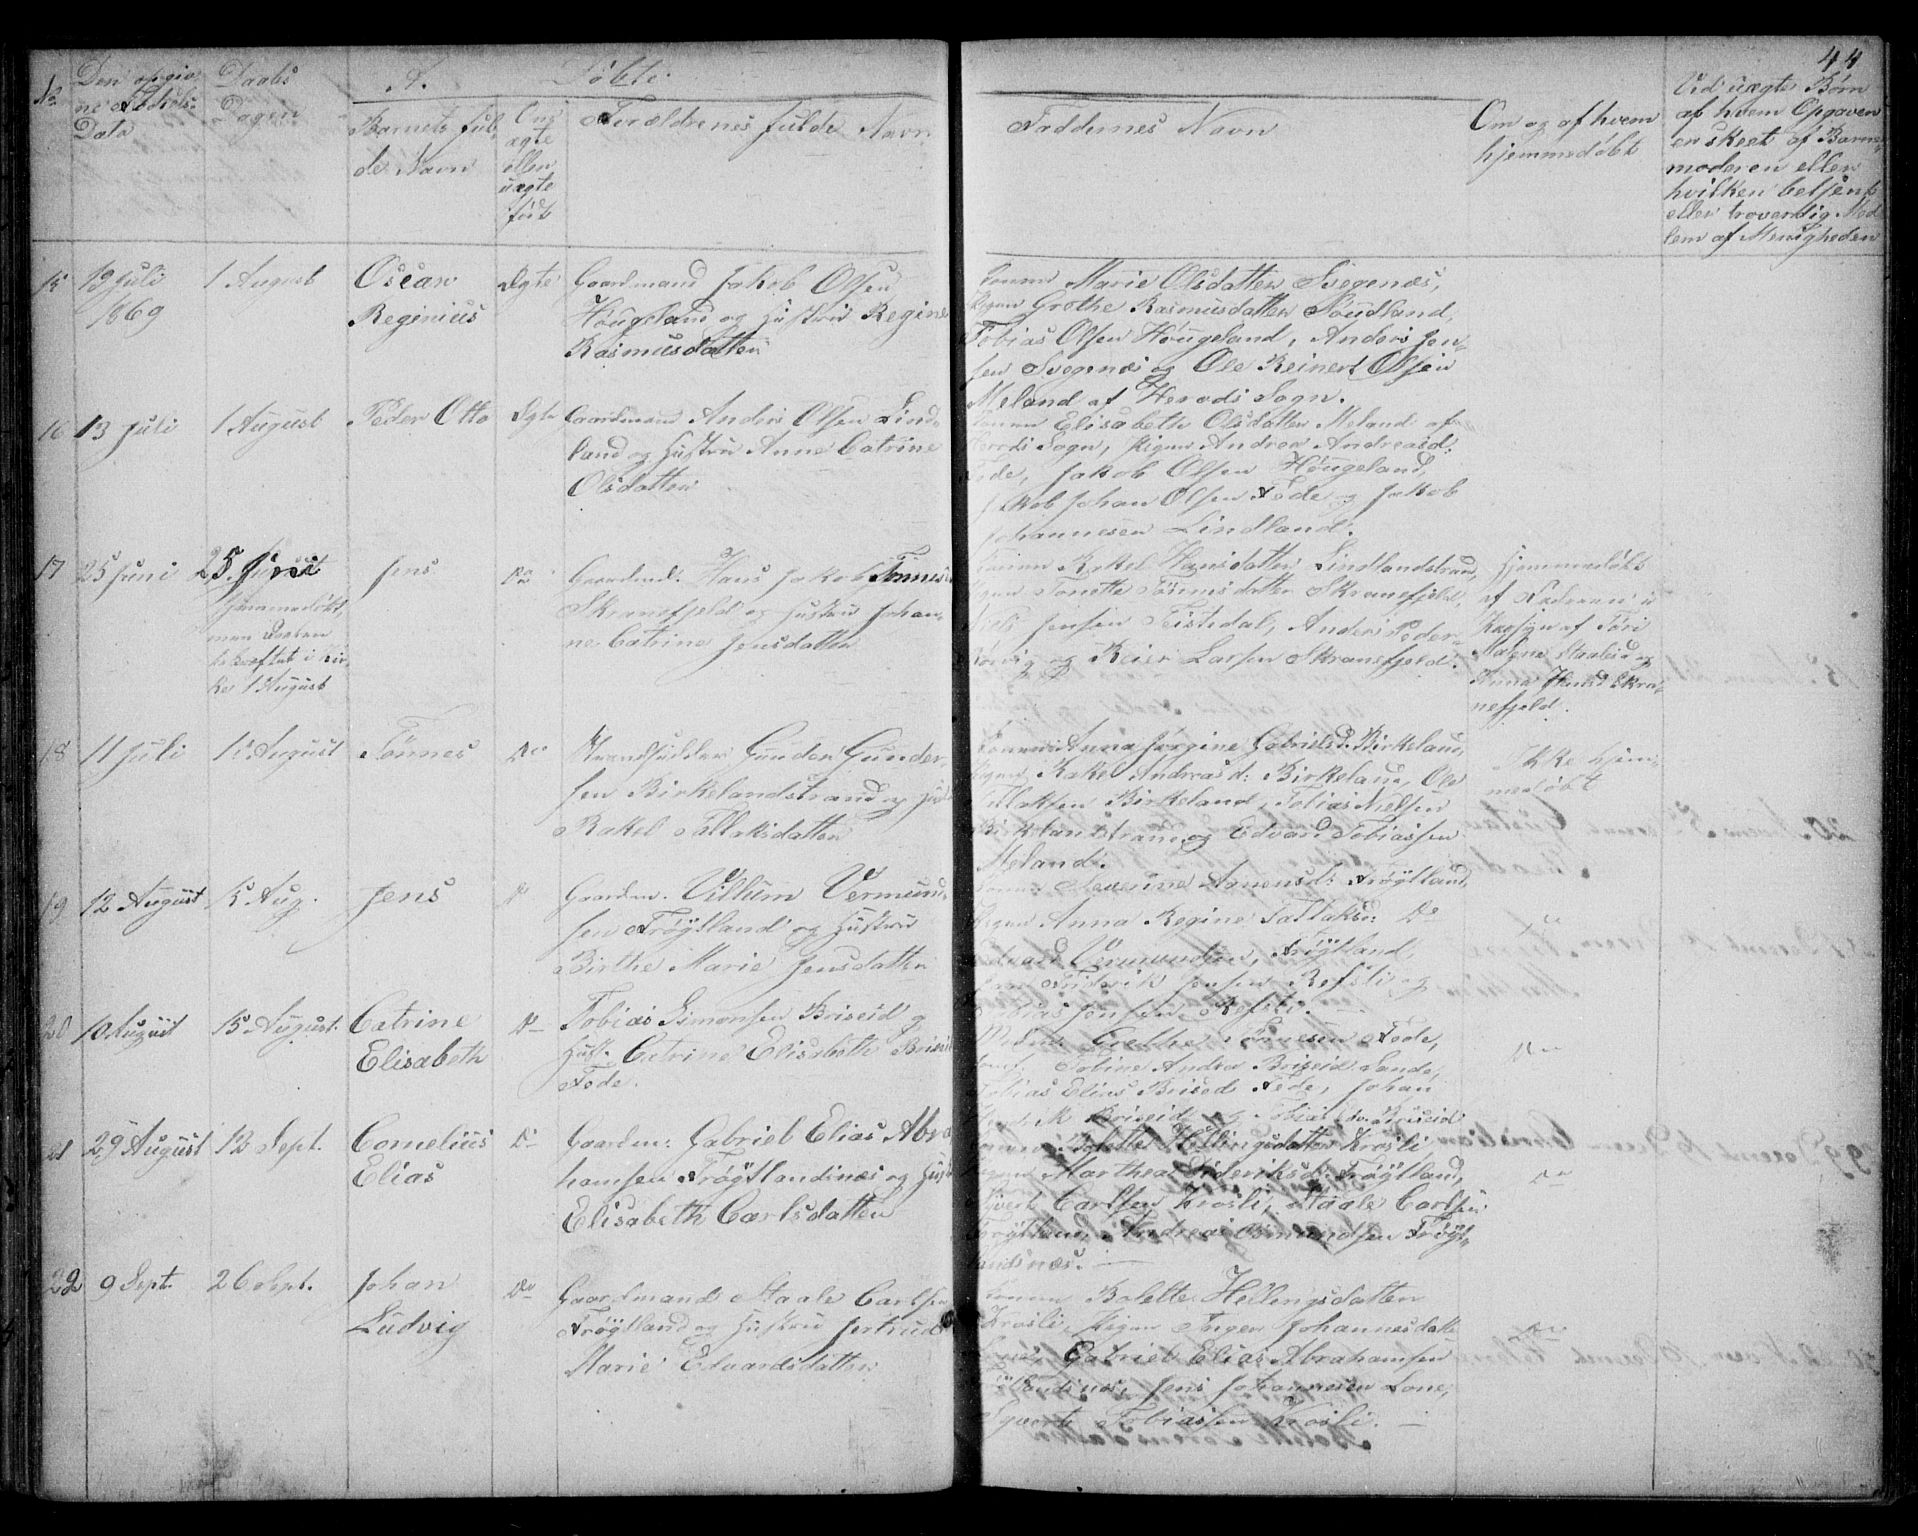 44
No
Den opgiv
ne Fødsels
Data
Daabs
Dagen
A.
Døbte.
Barnets ful
de Navn
Om
ægte
eller
uægte
født
Forældrenes fulde Navn
Faddernes Navn
Om og af hvem
hjemmedøbt
Ved uægte Børn
af hvem Opgaven
er skeet af Barne-
moderen eller
hvilken betjent
eller troverdig Med
lem af Menigheden
15 19 Juli
1869
1 August
Oscar
Reginius
Ægte
Gaardmand Jakob Olsen
Høugeland og Hustru Regine
Rasmusdatter
Marie Olsdatter Svegenæs,
Grethe Rasmusdatter Soudland,
Tobias Olsen Høugeland, Anders Jen-
sen Svegenæs og Ole Reinert Olsen
Meland af Herods Sogn.
16 13 Juli
1 August
Peder Otto
Ægte
Gaardmand Anders Olsen Lind-
land og Hustru Anne Catrine
Olsdatter
Elisabeth Olsdatter Meland af
Herods Sogn, Pigen Andrea Andreasd:
Jakob Olsen Høugeland,
Jakob Johan Olsen Fede og Jakob
Johannesen Lindland.
17 25 Juni
25 Juni
hjemmedøbt,
men Daaben
bekræftet i kir-
ken 1 August
Jens
Do
Gaardmd. Hans Jakob Tønnesen
Skranefjeld og Hustru Johan-
ne Catrine Jensdatter
Konen Rakel Hansdatter Lindlandstrand,
Pigen Tonette Tønnisdatter Skranefjeld,
Niels Jensen Feistedal, Anders Peder-
og Reier Larsen Skranefjeld.
Hjemmedøbt
af Faderen i
Malene Staalesd og
Anna Skra-
nefjeld.
18 11 Juli
1 August
Tønnes
Do
Strandsidder Gunder Gunder
sen Birkelandstrand og Hust
Rakel Tallaksdatter
Konen Anna Jorgine Gabrielsd. Birkeland,
Pigen Rakel Andreasd: Birkeland, Ole
Tallaksen Birkeland, Tobias Nielsen
Birkelandstrand og Edvard Tobiassen
Meland.
Ikke hjem-
medøbt
19 12 August
15 Aug.
Jens
Do
Gaardm. Villum Vermund-
sen Frøytland og Hustru
Birthe Marie Jensdatter
Severine Frøytland,
Pigen Anna Regine Tallaksd: Do
Edvard Vermundsen, Frøytland,
Fiderik Jensen Refsti og
Tobias Jensen Refsti.
Do
20 10 August
15 August.
Catrine
Elisabeth
Do
Tobias Simonsen Briseid og
Hust. Catrine Elisabeth Briseid
Fede.
Grethe Tønnesen Fede,
Tobine Andrea Briseid Sande,
Tobias Elias Briseid Fede, Johan
Briseid og Tobias Briseid
Do
21 29 August
12 Sept.
Cornelius
Elias
Do
Gaardm: Gabriel Elias Abra
hamsen Frøytlandsnæs og Hust
Elisabeth Carlsdatter
Bolette Hellingsdatter Krosli,
Pigen Marthea Dideriksd: Frøytland,
Syvert Carlsen Krosli, Staale Carlsen
Frøytland, Andreas Osmundsen Frøyt-
landsnæs.
Do
22 9 Sept.
26 Sept.
Johan
Ludvig
Do
Gaardmand Staale Carlsen
Frøytland og Hustru Jertrud
Marie Edvardsdatter
Konen Bolette Hellingsdatter
Krosli, Pigen Inger Johannesdatte
Gabriel Elias Abrahamsen
Frøytlandsnæs, Jens Johannesen Lone,
Syvert Tobiassen Krosli.
Do